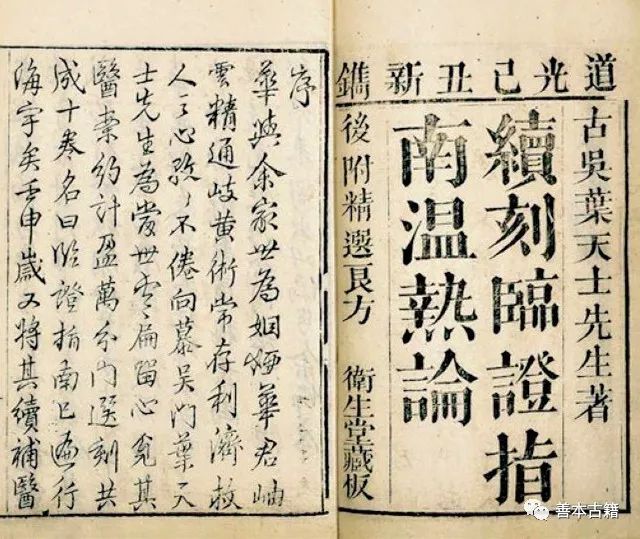 道光己丑新鐫
古吳葉天士先生著
續刻臨證指
南温熱論
後附精選良方　衛生堂藏板
序
華與余家世為姻婭華君岫
雲精通岐黃術常存利濟救
人之心孜々不倦向慕吳門葉天
士先生為當世盧扁留心覓其
醫案約計盈萬分門選刻共
成十卷名曰臨證指南已遍行
海宇矣壬申歲又將其續補醫
善本古籍